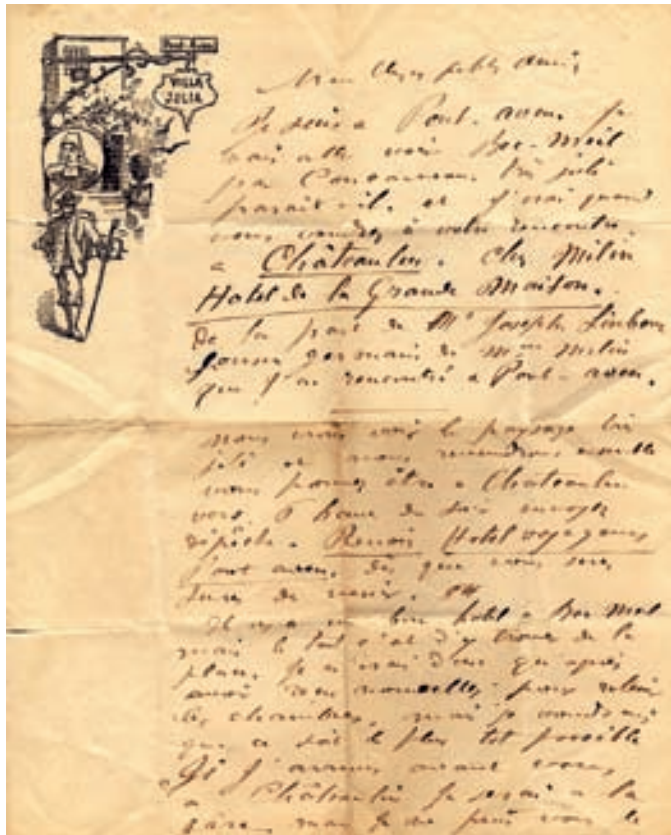 VILLA
JULIA
Mon cher petit ami,
Je suis à Pont-aven. Je
vais aller voir Beg-Meil
par Concarneau très joli
parait-il. et j'irai quand
vous viendrez à votre rencontre.
a Châteaulin. Chez Milin
Hotel de la Grande Maison.
de la part de Mr Joseph
Cousin germain de Mme Milin
que j'ai rencontré a Pont-aven.
nous irons voir le paysage très
joli et nous reviendrons ensemble
vous pouvez être a Chateaulin
vers 6 heures du soir envoyez
dépêche. Renoir Hotel voyageurs
Pont aven. dès que vous serez
de venir.
Il y a un bon hotel a Beg Meil
mais le tout c'est d'y trouver de la
place. Je n'irai donc qu'après
avoir nouvelles pour retenir
les chambres, mais je voudrais
que ce soit le plus tot possible
Si j'arrive avant vous,
a Châteaulin je serai a la
gare, mais je ne puis vous le